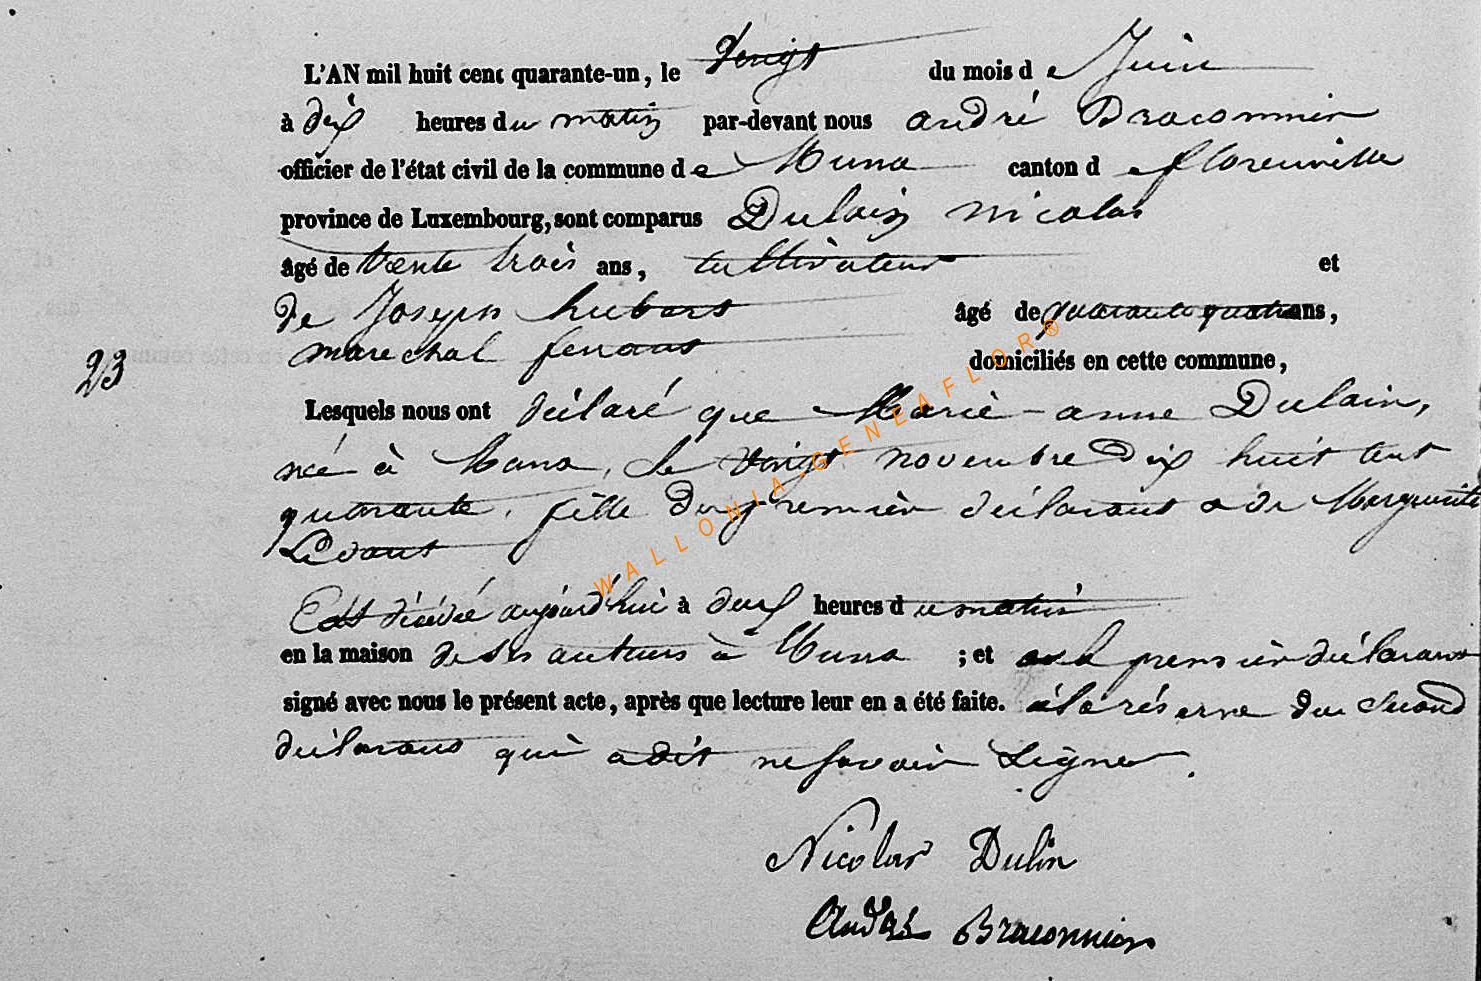 L'AN mil huit cent quarante-un, le vingt du mois de Juin
à dix heures du matin par-devant nous andré Braconnier
officier de l'état civil de la commune de Muno canton de florenville
province de Luxembourg, sont comparus Dulain nicolas
âgé de trente trois ans, cultivateur et
de Joseph hubert âgé de quarante quatre ans,
marechal ferrant domiciliés en cette commune,
23
Lesquels nous ont déclaré que Marie-anne Dulain,
née à Muno, le vingt novembre dix huit cent
quarante, fille du premier déclarant & de Marguerite
Est décédée aujourd'hui à deux heures du matin
en la maison de ses auteurs à Muno ; et a le premier déclarant
signé avec nous le présent acte, après que lecture leur en a été faite. à la réserve du second
déclarant qui a dit ne savoir signer.
Nicolas Dulin
André Braconnier
WALLONIA-GENEAFLOR®